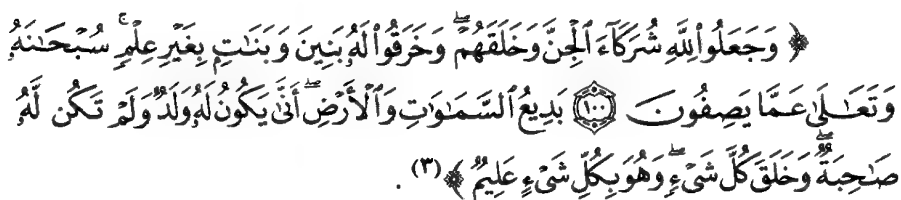 ﴿ وَجَعَلُوا۟ لِلَّهِ شُرَكَآءَ ٱلْجِنَّ وَخَلَقَهُمْ ۖ وَخَرَقُوا۟ لَهُۥ بَنِينَ وَبَنَٰتٍۭ بِغَيْرِ عِلْمٍ ۚ سُبْحَٰنَهُۥ
وَتَعَٰلَىٰ عَمَّا يَصِفُونَ ۝١٠٠ بَدِيعُ ٱلسَّمَٰوَٰتِ وَٱلْأَرْضِ ۖ أَنَّىٰ يَكُونُ لَهُۥ وَلَدٌ وَلَمْ تَكُن لَّهُۥ
صَٰحِبَةٌ ۖ وَخَلَقَ كُلَّ شَىْءٍ ۖ وَهُوَ بِكُلِّ شَىْءٍ عَلِيمٌ ﴾(٣) .